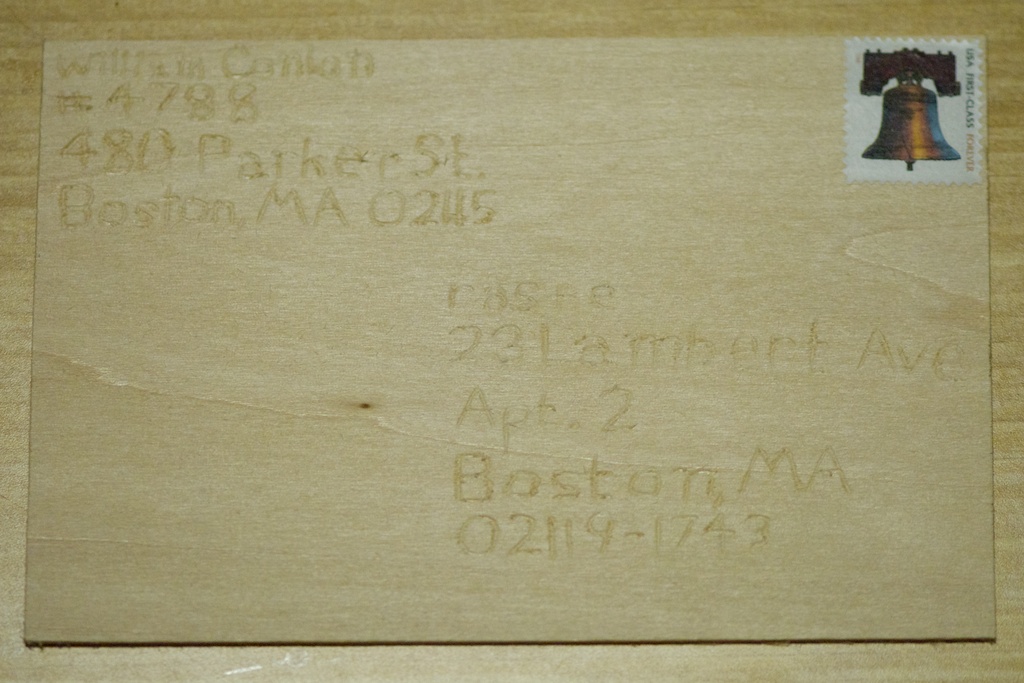 William
#4788
480 Parker St.
Boston, MA 02115
USA FIRST-CLASS FOREVER
23 Lambert Ave
Apt. 2
Boston, MA
02119-1743